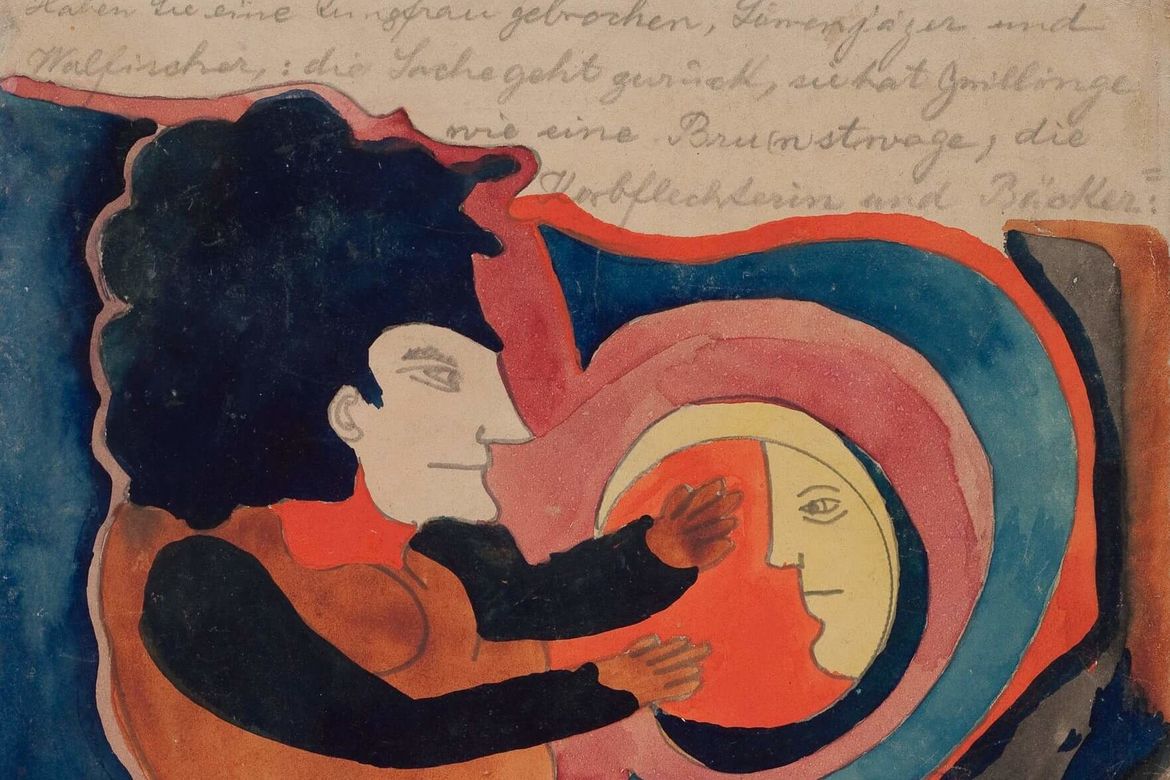 Haben Sie eine Jungfrau gebrochen, Löwenjäger und
Walfischer, : die Sache geht zurück, sie hat Zwillinge
wie eine Bru(nstwage, die
Korbflechterin und Bäcker=